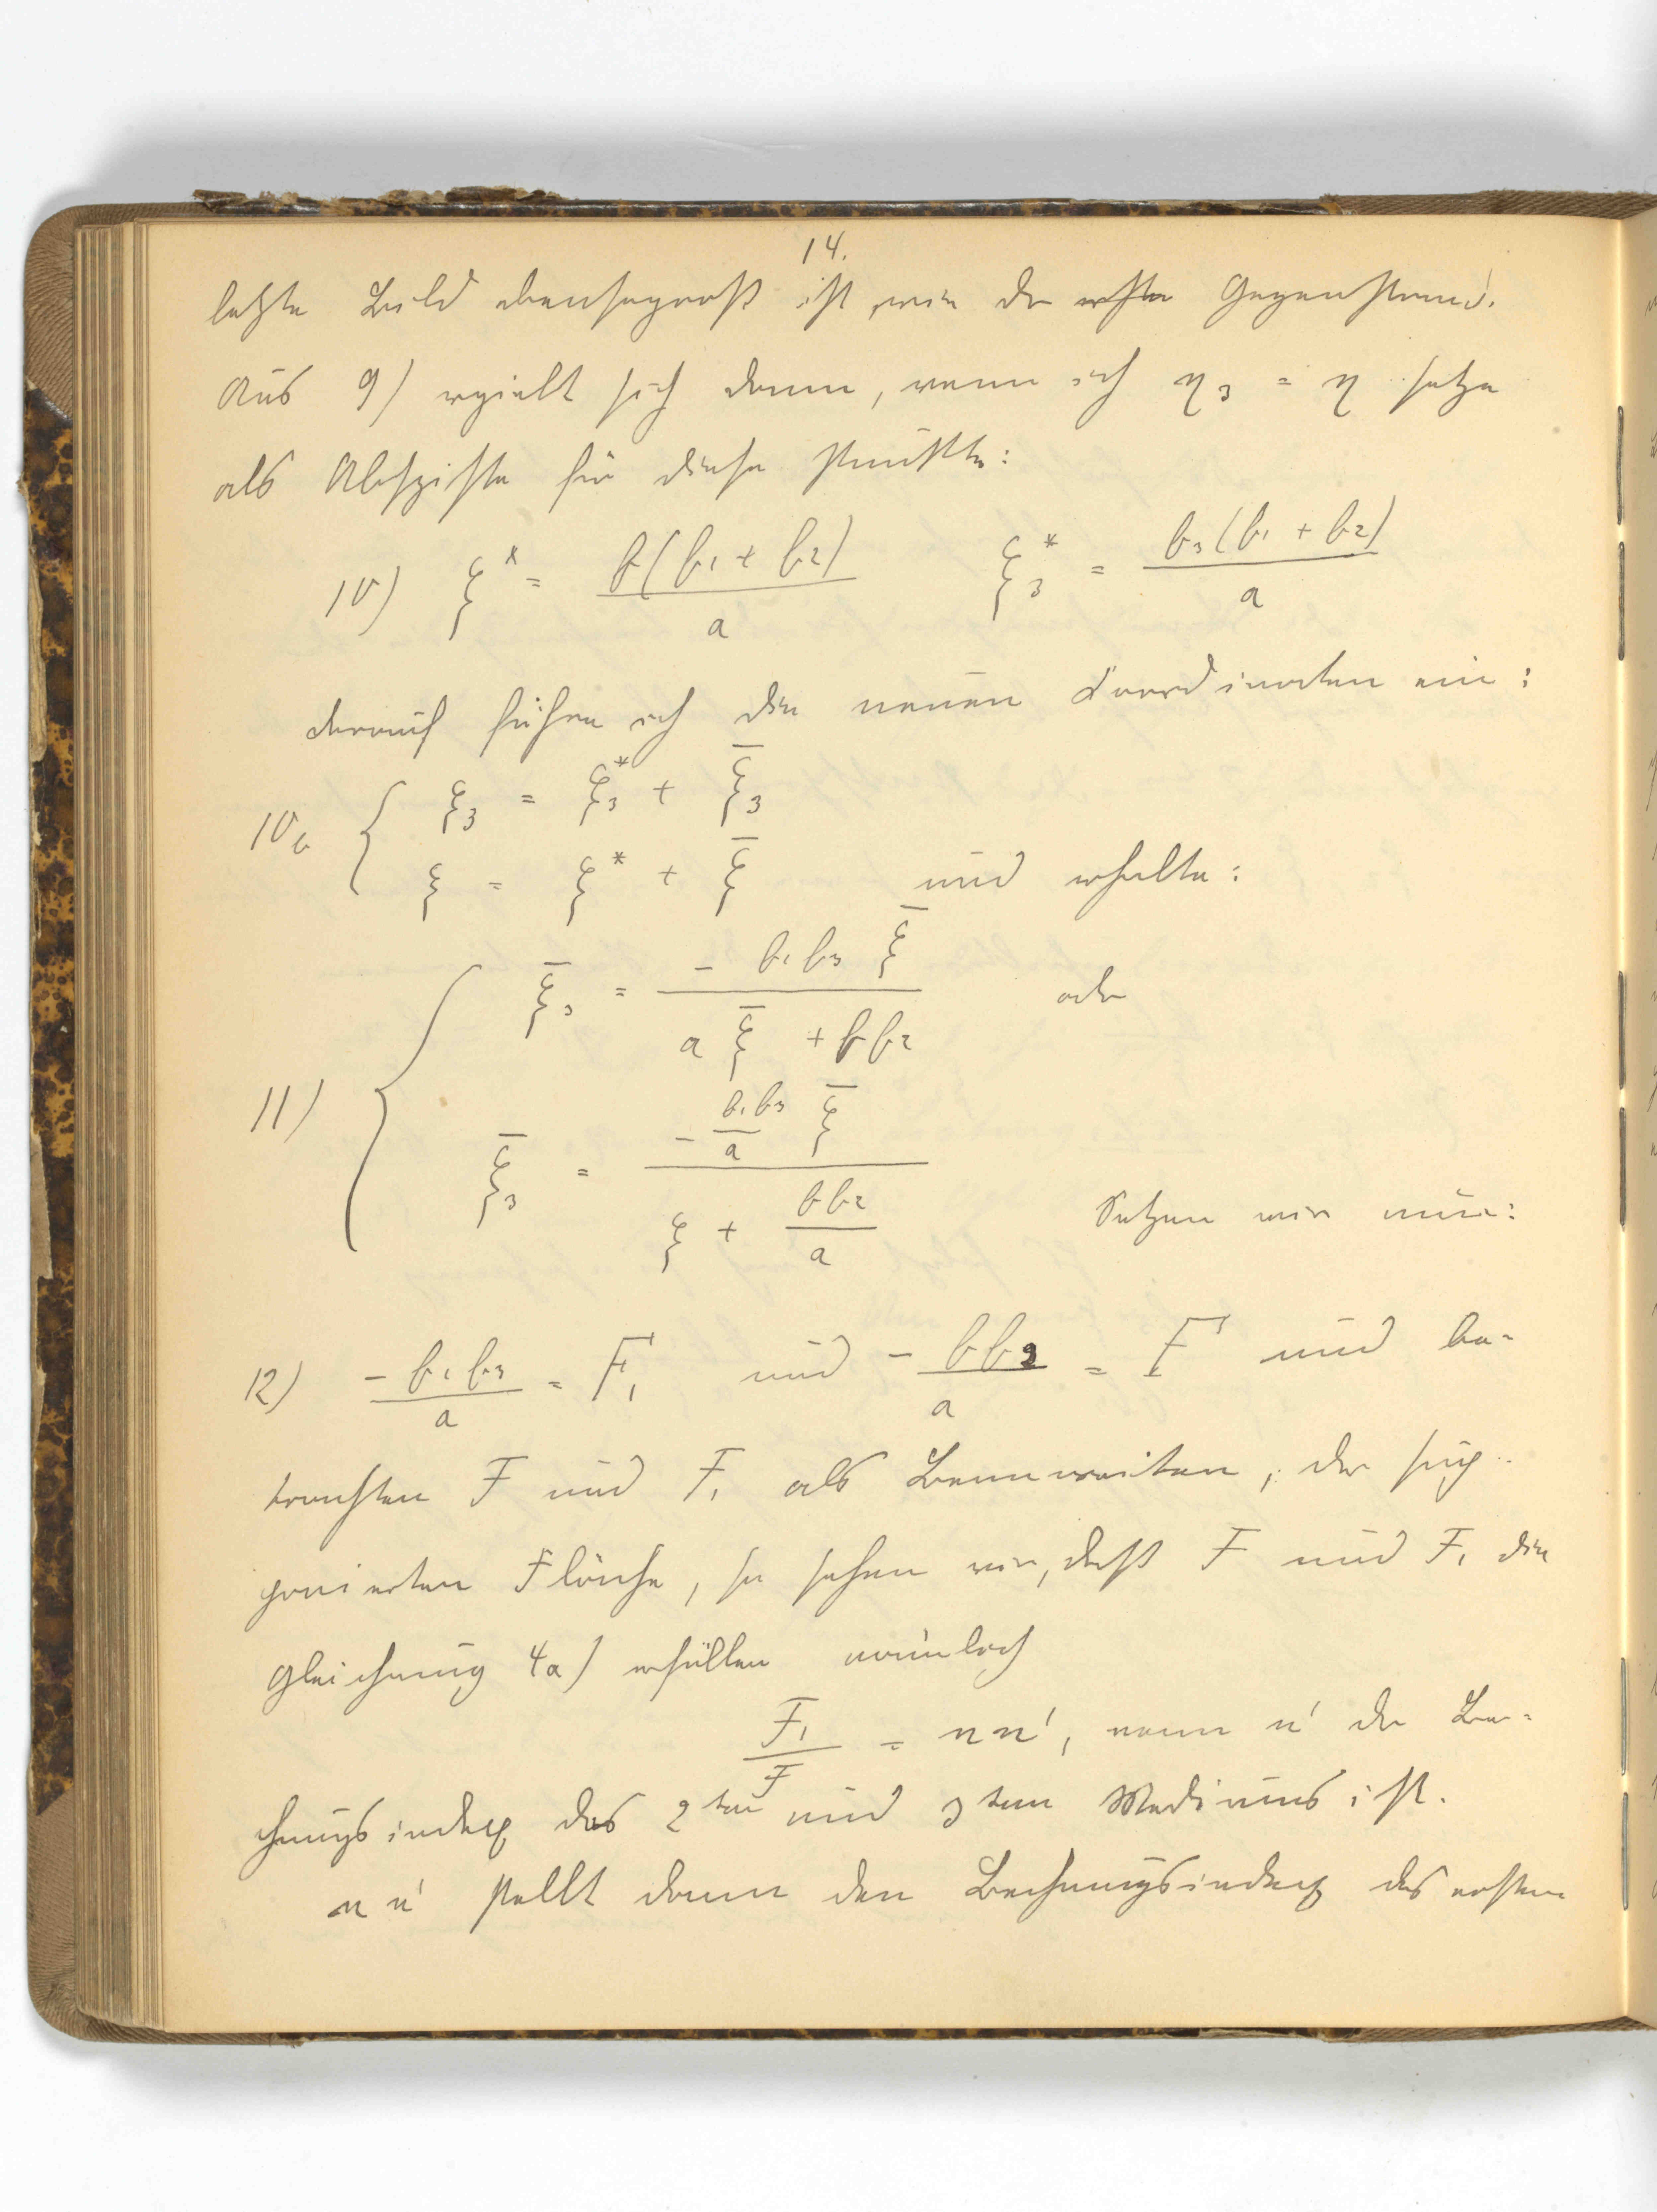 14.
letzte Bild ebensogroß ist, wie der erste Gegenstand.
Aus 9) ergiebt sich dann, wenn ich η₃ = η setze
als Abszisse für diese Punkte:
10) ξ* = b(b₁ + b₂)/a ξ₃* = b₃(b₁ + b₂)/a
darauf führe ich die neuen Koordinaten ein:
10a { ξ₃ = ξ₃* + ξ̄₃
ξ = ξ* + ξ̄ und erhalte:
11) { ξ̄₃ = - b₁b₃ ξ̄ / (a ξ̄ + b b₂) oder
ξ̄₃ = - (b₁b₃/a) ξ̄ / (ξ + b b₂/a) Setzen wir nun:
12) - b₁b₃/a = F₁ und - b b₂/a = F und be-
trachten F und F₁ als Brennweiten, der
Fläche, so sehen wir, daß F und F₁ die
Gleichung 4a) erfüllen nämlich
F₁/F = n n', wenn n' der Bre-
chungsindex des 2ten und 3ten Mediums ist.
n n' stellt dann den Brechungsindex des ersten